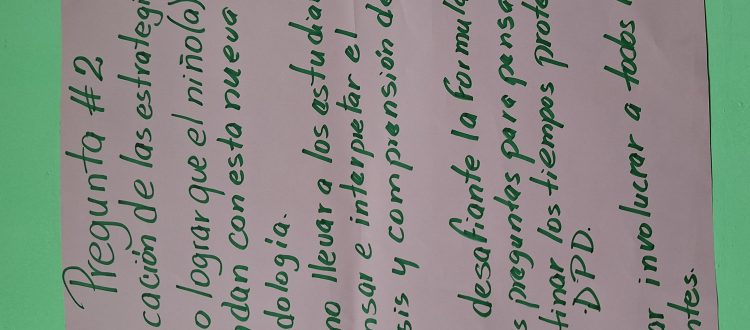 Pregunta #2
cación de las estrategi
o lograr que el niño(a)
dan con esta nueva
dología.
no llevar a los estudia
nsar e interpretar el
sis y comprensión de
desafiante la formul
s preguntas para pensa
tinar los tiempos prote
DPD.
r involucrar a todos
ntes.